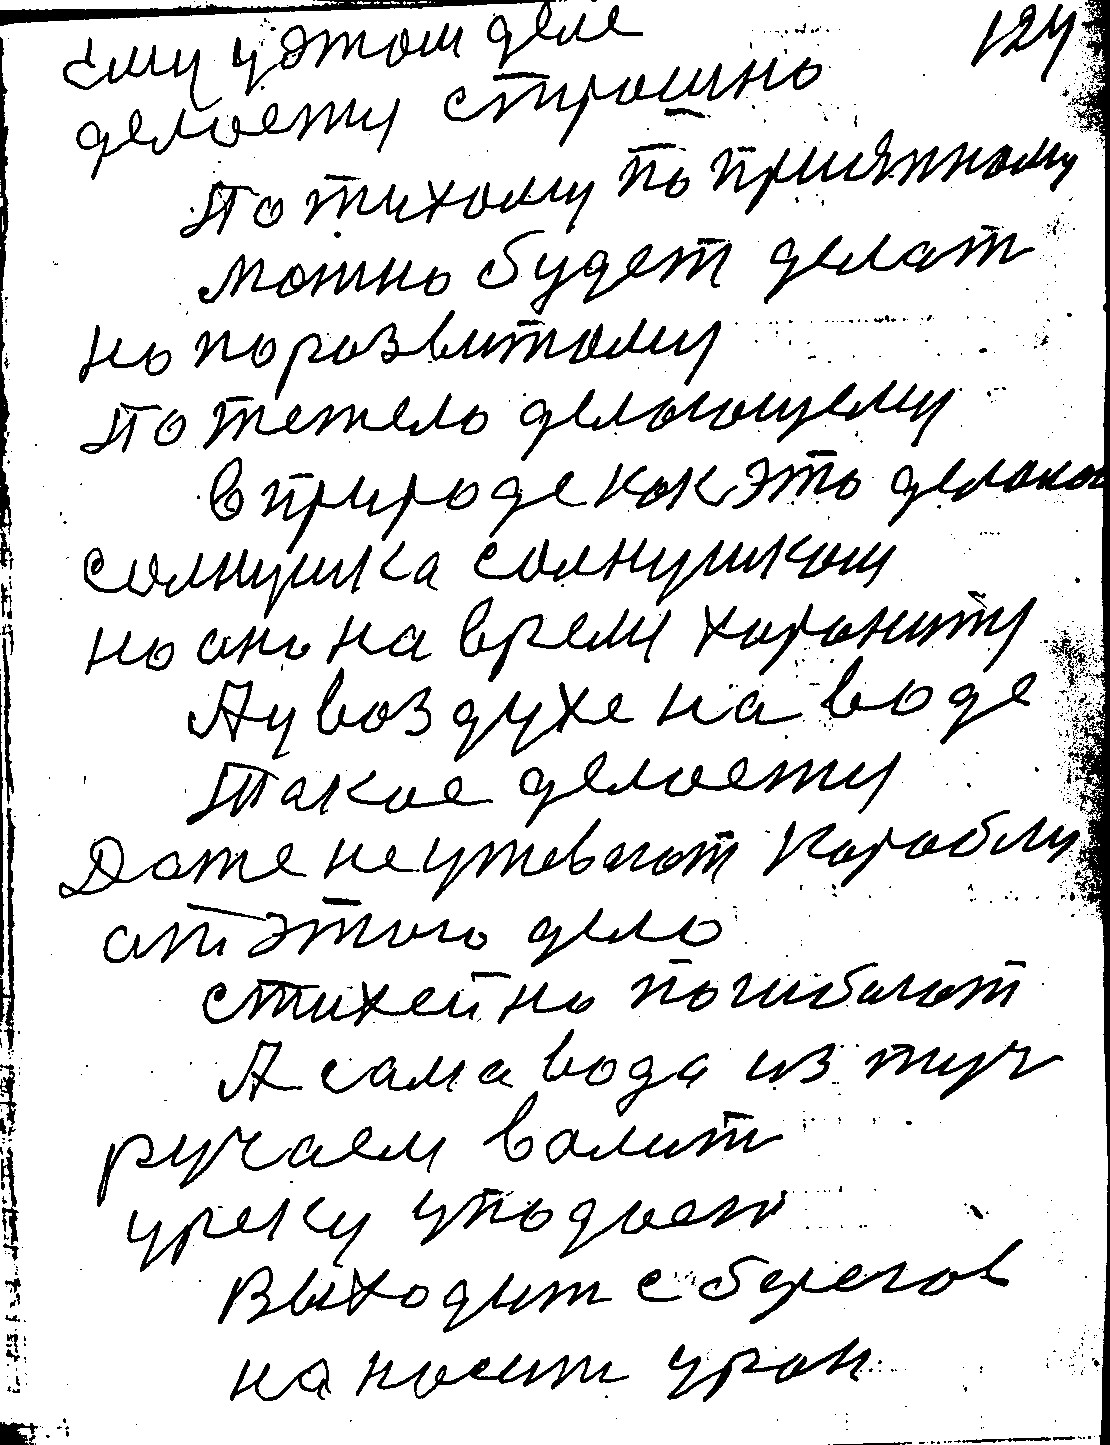 Ему у этом деле 124
делоету строшно
По тихому по приятному
можно будет делат
но поразвитому
по тежело делоющему
в природе как это делают
солнушка солнушком
но оно на врему хоронету
А у воздухе на воде
такое делоету
Доже не ужевают Кораблу
от этого дело
стихейно погибают
А сама вода из туч
ручаем валит
у реку уподоет
Выходит с берегов
на носит урон